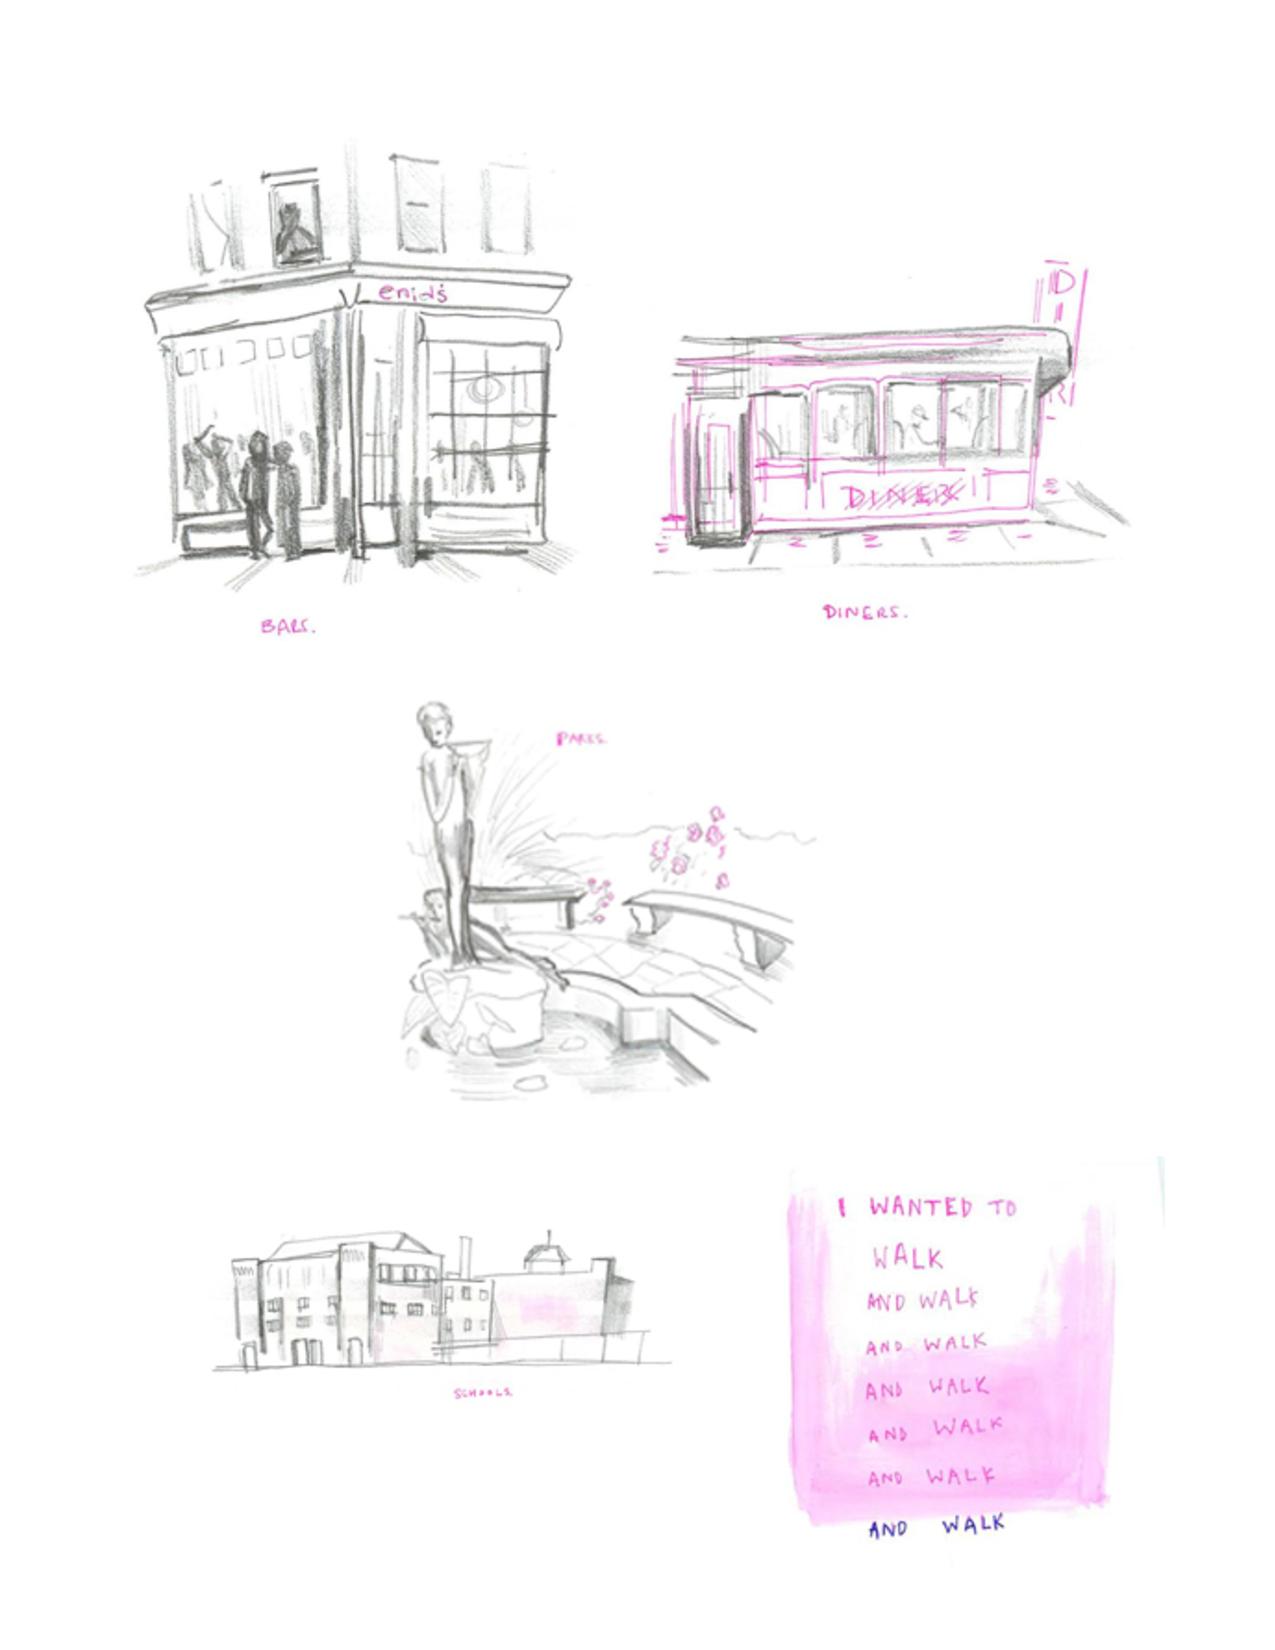 enid's
D
I
R
DINER
BARS.
DINERS.
PARKS.
SCHOOLS.
I WANTED TO
WALK
AND WALK
AND WALK
AND WALK
AND WALK
AND WALK
AND WALK